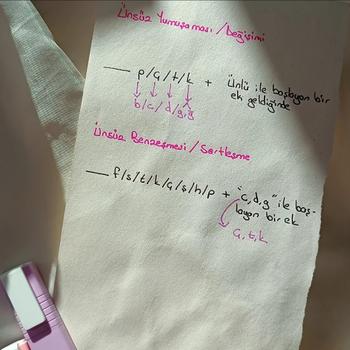 Ünsüz Yumuşaması / Değişimi
p/ç/t/k + Ünlü ile başlayan bir
ek geldiğinde
b/c/d/g,ğ
Ünsüz Benzeşmesi / Sertleşme
f/s/t/k/ç/ş/h/p + "c,d,g" ile baş-
layan bir ek
ç,t,k